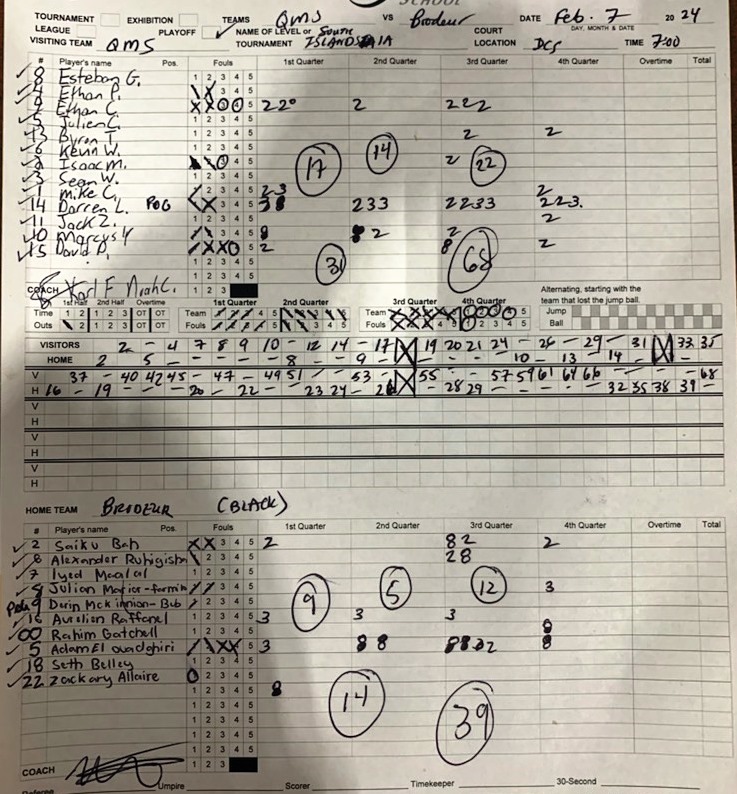 SCHOOL
TOURNAMENT EXHIBITION TEAMS QMS VS Brodeur DATE Feb. 7 2024
LEAGUE PLAYOFF NAME OF LEVEL or South COURT DAY, MONTH & DATE
VISITING TEAM QMS TOURNAMENT LOCATION DCS TIME 7:00
# Player's name Pos. Fouls 1st Quarter 2nd Quarter 3rd Quarter 4th Quarter Overtime Total
8 Esteban G. 1 2 3 4 5
4 Ethan P. 3 4 5
9 Ethan C. 5 2 2 2 2 2 2
5 Julien C. 1 2 3 4 5
13 Byron T 1 2 3 4 5 2 2
6 Kevin W. 1 2 3 4 5 17 14
2 Isaac M. 4 5 2 22
3 Sean W. 1 2 3 4 5
1 Mike C. 2 3 4 5 2 3 2
14 Darren L. POG 3 4 5 2 3 3 2 2 3 3 2 2 3
11 Jack Z. 1 2 3 4 5 2
10 Marcus Y 3 4 5 2 2
15 David P. 5 2 31 68 2
COACH Karl F Noah C. 1 2 3
1st Half 2nd Half Overtime 1st Quarter 2nd Quarter 3rd Quarter 4th Quarter Alternating, starting with the
team that lost the jump ball.
Time 1 2 1 2 3 OT OT Team 4 5 Team 5 Jump
Outs 2 1 2 3 OT OT Fouls Fouls 5 1 2 3 4 5 Ball
VISITORS 2 - 4 7 8 9 10 - 12 14 - 17 19 20 21 24 - 26 - 29 - 31 33 35
HOME 2 - 5 - - - - - 8 - - 9 - - - - - 10 - 13 - 14 -
V 37 - 40 42 45 - 47 - 49 51 - - 53 - 55 - - 57 59 61 64 66 - - - 68
H 16 - 19 - - - 20 - 22 - - 23 24 - 26 - 28 29 - - - - - 32 35 38 39 -
V
H
V
H
V
H
HOME TEAM BRODEUR (BLACK)
# Player's name Pos. Fouls 1st Quarter 2nd Quarter 3rd Quarter 4th Quarter Overtime Total
2 Saiku Bah 3 4 5 2 2 2
8 Alexander Ruhigisha 2 3 4 5 2
7 Iyed Maalal 1 2 3 4 5
Julian 3 4 5 9 5 12 3
POG 9 Dorin 2 3 4 5
16 Aurelien Raffanel 1 2 3 4 5 3 3 3
00 Rahim Gatchell 1 2 3 4 5
5 Adam El ouadghiri 5 3
18 Seth Belley 1 2 3 4 5
22 Zackary Allaire 2 3 4 5
1 2 3 4 5 14 39
1 2 3 4 5
1 2 3 4 5
1 2 3 4 5
COACH 1 2 3
Referee Umpire Scorer Timekeeper 30-Second